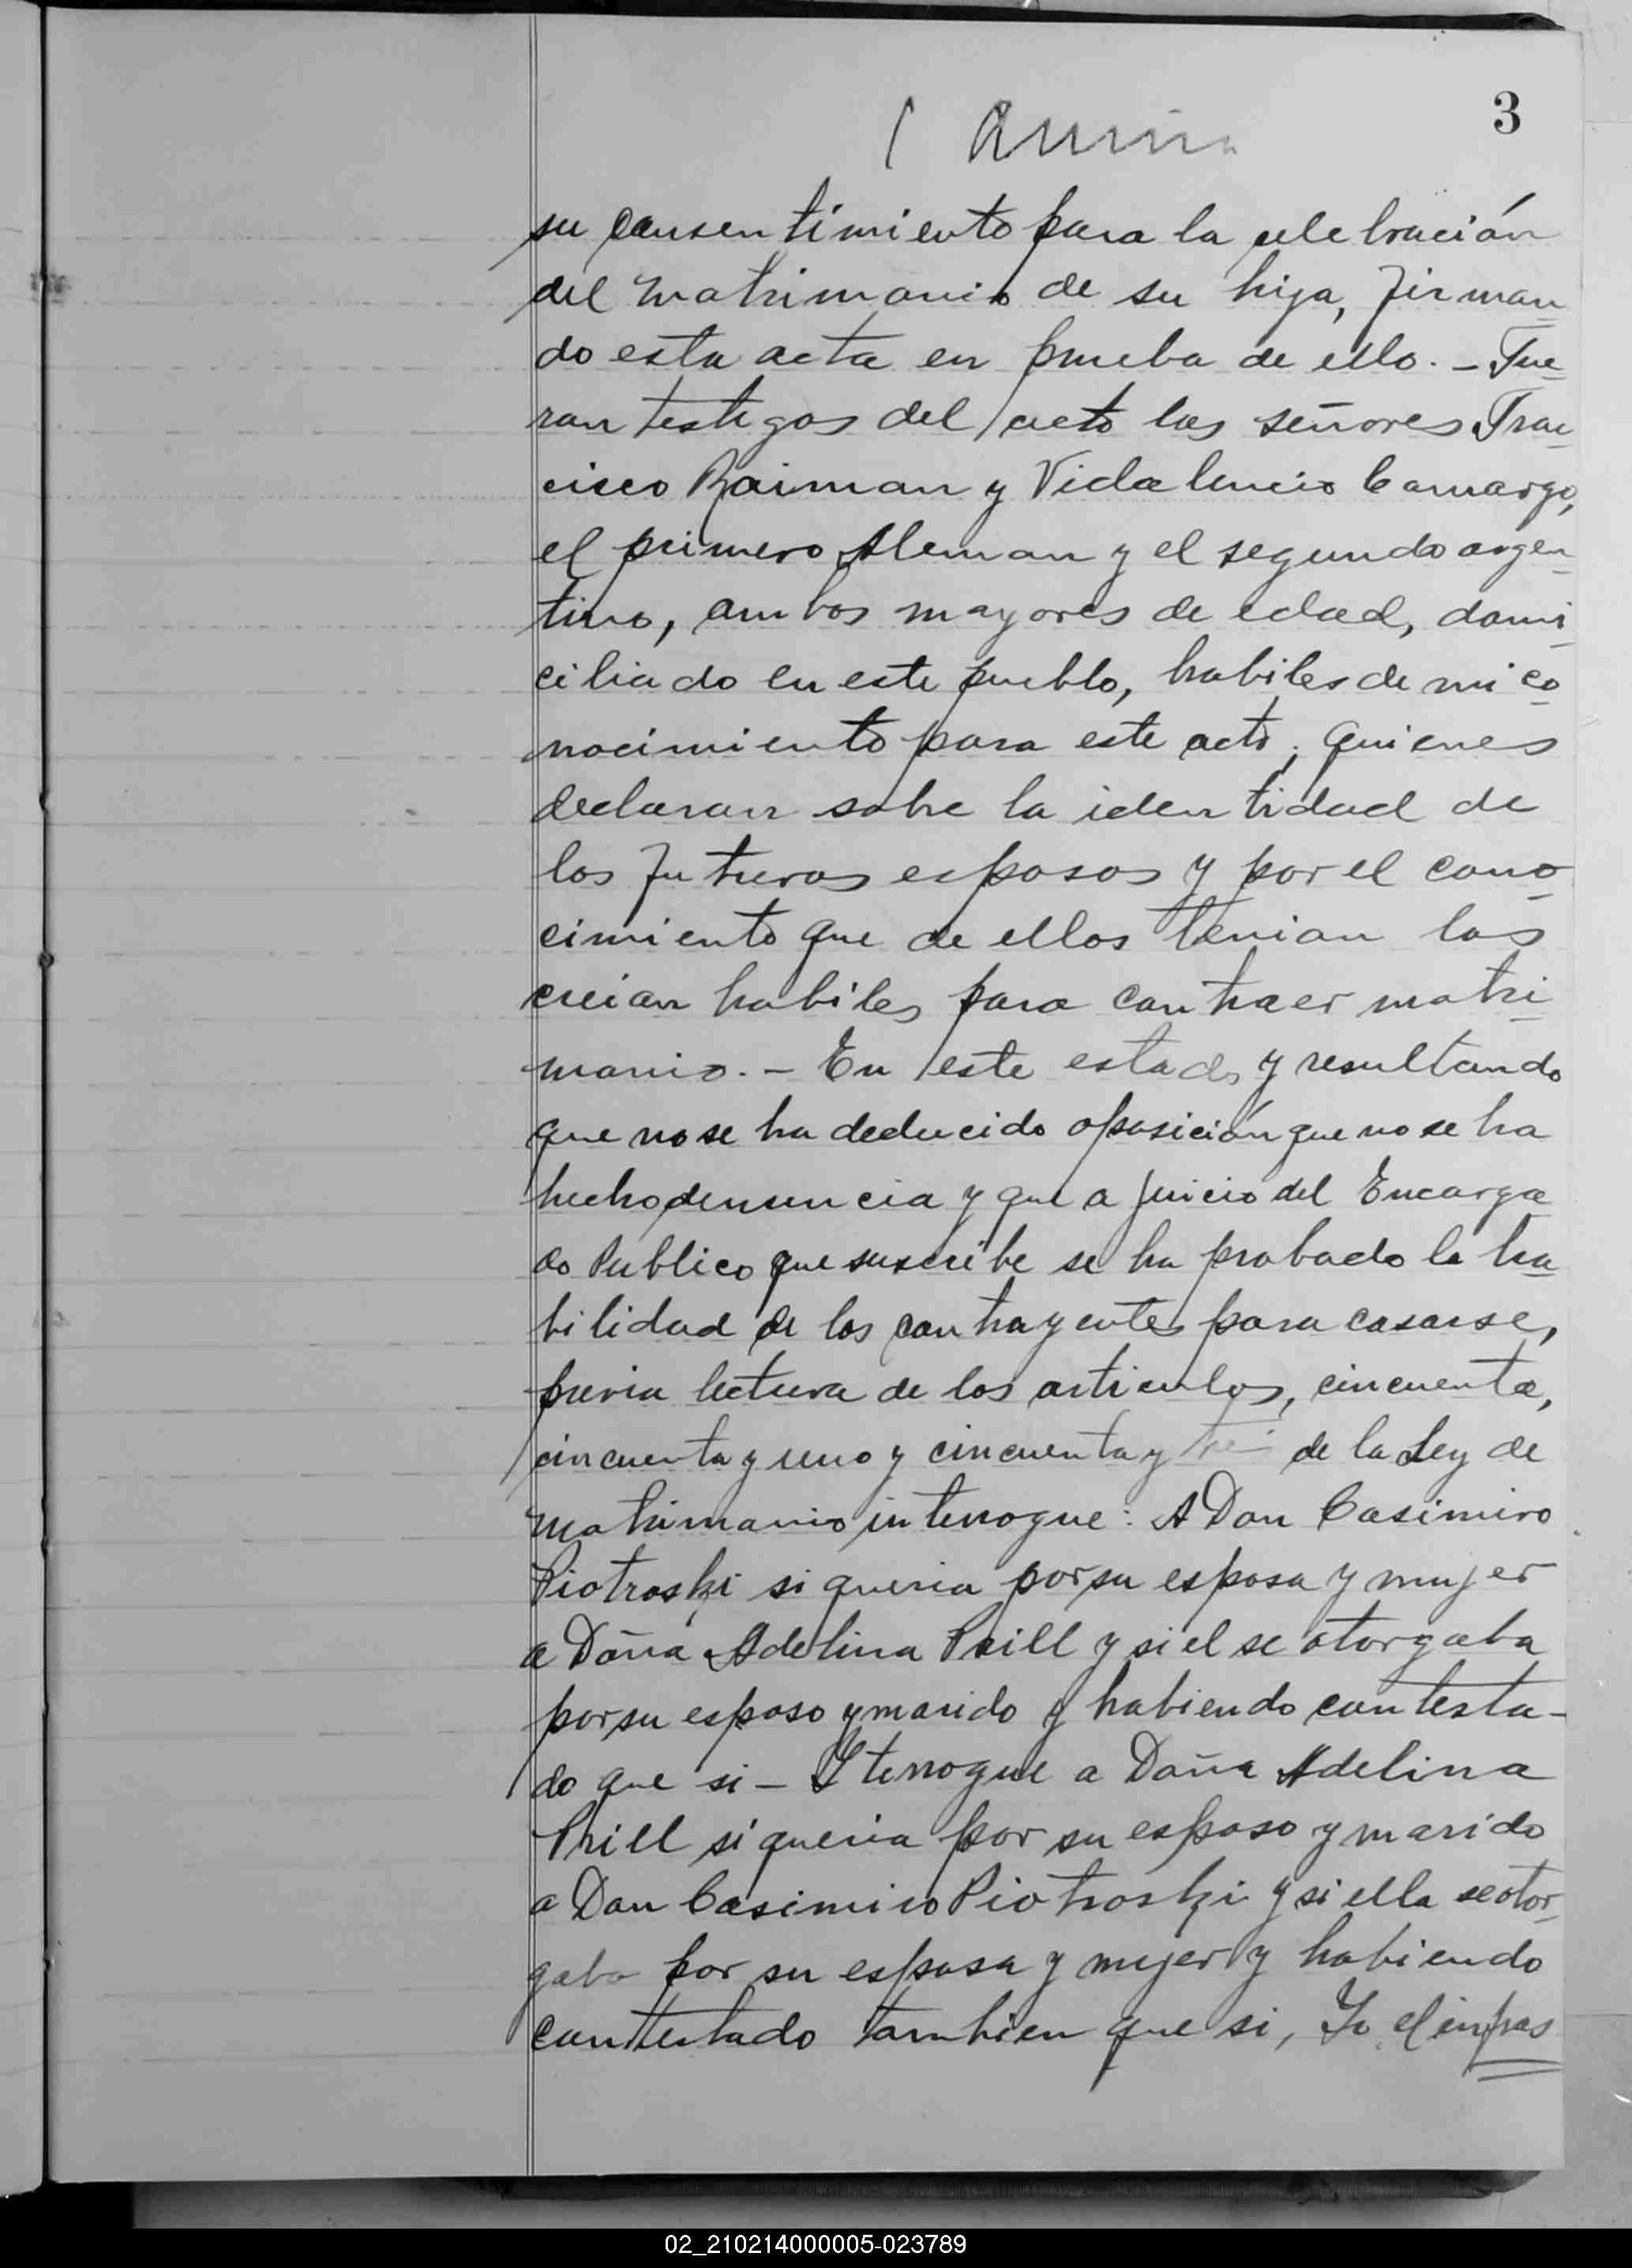 3
su consentimiento para la celebración
del matrimonio de su hija, firman
do esta acta en prueba de ello. - Fue
ron testigos del acto los señores Fran
cisco Raiman y Vidal Camargo,
el primero Aleman y el segundo argen
tino, ambos mayores de edad, domi
ciliado en este pueblo, habiles de mi co
nocimiento para este acto; quienes
declaran sobre la identidad de
los futuros esposos y por el cono
cimiento que de ellos tenian los
creian habiles para contraer matri
monio. - En este estado y resultando
que no se ha deducido oposición que no se ha
hecho denuncia y que a juicio del Encarga
do Publico que suscribe se ha probado la ha
bilidad de los contrayentes para casarse,
previa lectura de los articulos, cincuenta,
cincuenta y uno y cincuenta y tres de la Ley de
matrimonio interrogue: A Don Casimiro
Piotroski si queria por su esposa y mujer
a Doña Adelina Prill y si el se otorgaba
por su esposo y marido y habiendo contesta-
do que si - Iterrogue a Doña Adelina
Prill si queria por su esposo y marido
a Don Casimiro Piotroski y si ella se otor
gaba por su esposa y mujer y habiendo
contestado tambien que si, Yo el
02_210214000005-023789